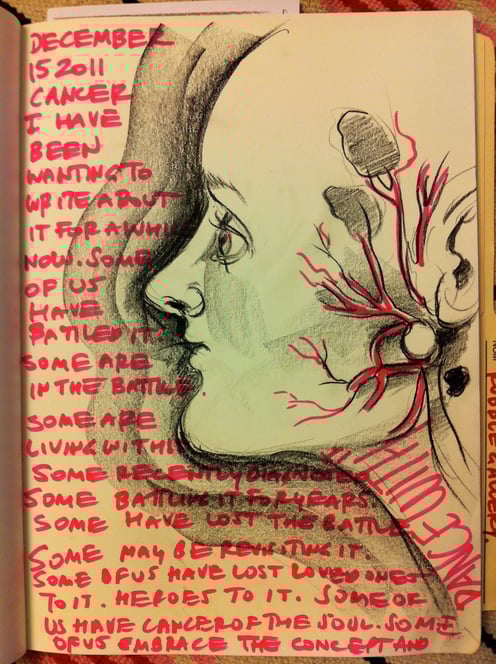 DECEMBER
15 2011
CANCER
I HAVE
BEEN
WANTING TO
WRITE ABOUT
IT FOR A WHILE
NOW. SOME
OF US
HAVE
BATTLED IT
SOME ARE
IN THE BATTLE.
SOME ARE
LIVING WITH IT
SOME RECENTLY DIAGNOSED
SOME BATTLING IT FOR YEARS.
SOME HAVE LOST THE BATTLE
SOME MAY BE REVISITING IT.
SOME OF US HAVE LOST LOVED ONES
TO IT. HEROES TO IT. SOME OF
US HAVE CANCER OF THE SOUL. SOME
OF US EMBRACE THE CONCEPT AND
DANCE WITH